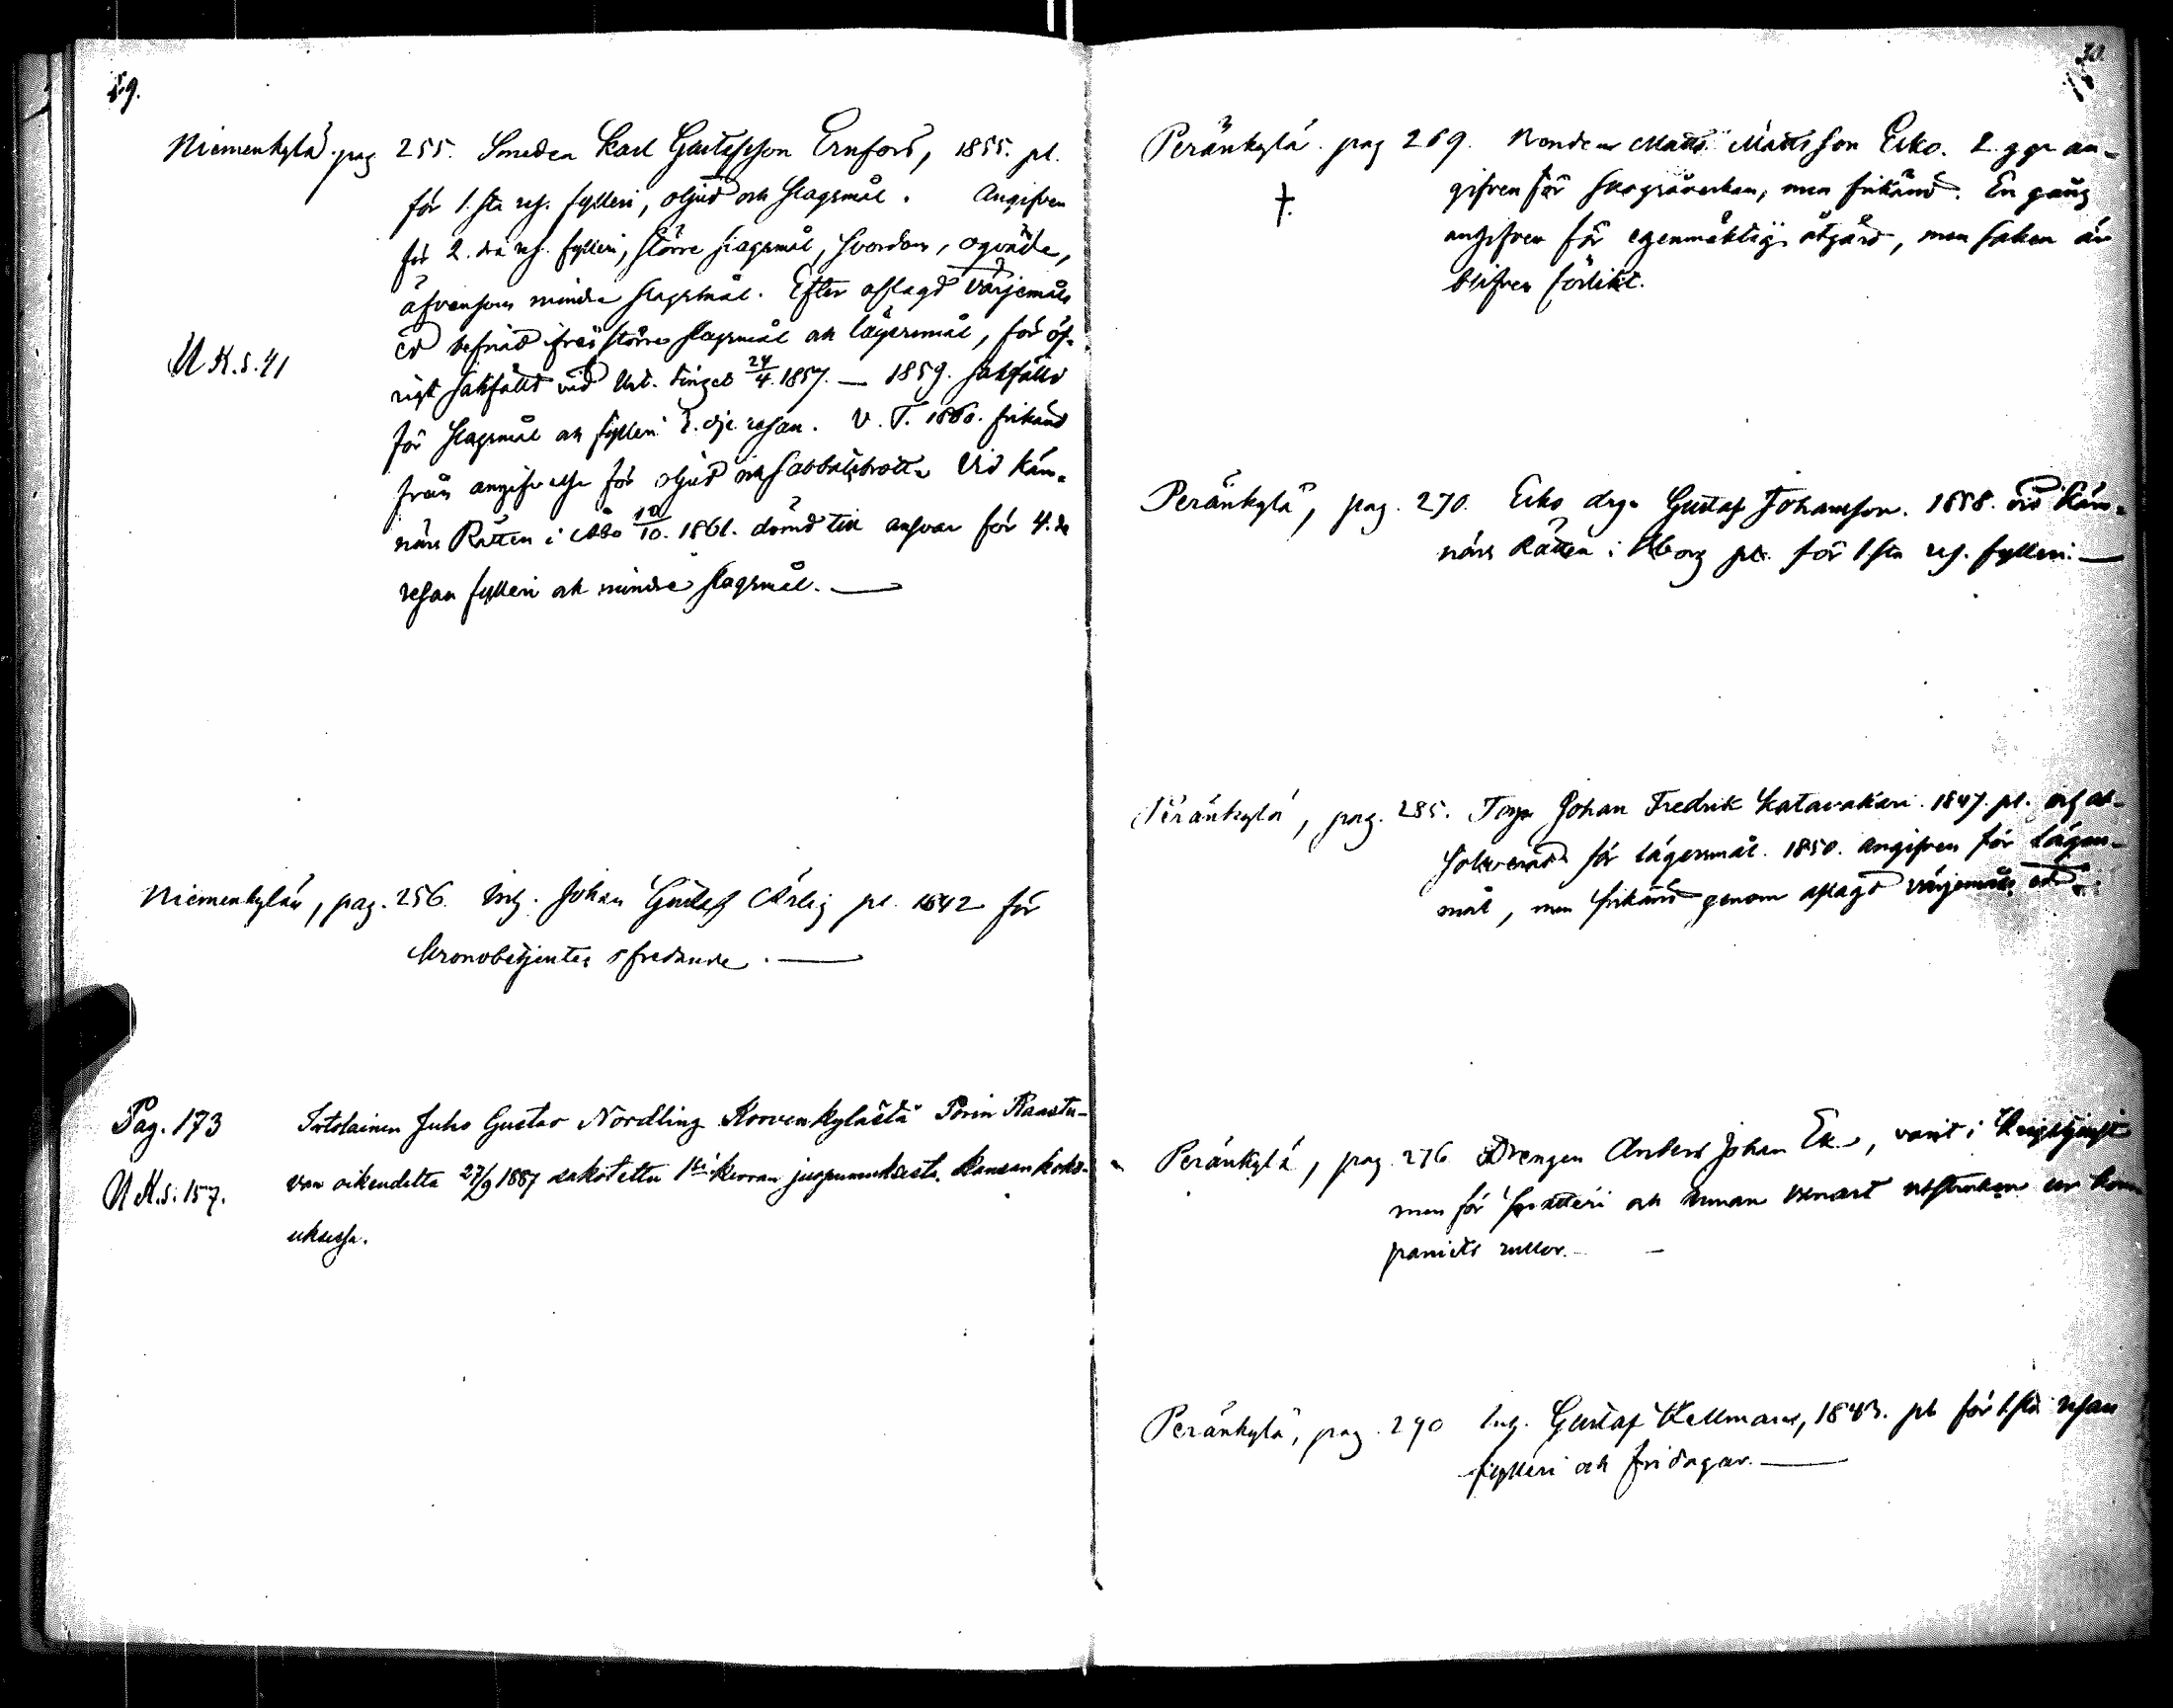 59.
Niemenkylä. pag 255. Smeden Karl Gustafsson Ernfors, 1855. pl.
för 1.sta res. fylleri, oljud och slagsmål. Angifven
för 2.dra res. fylleri, större slagsmål, svordom, oqväde,
äfvensom mindre slagsmål. Efter aflagd värjemåls
ed befriad ifrån större slagsmål och lägersmål, för öf-
U K.s. 41
rigt sakfälld vid Urt. tinget 24/4. 1857. — 1859. sakfälld
för slagsmål och fylleri 3.dje resan. V. T. 1860. frikänd
från angifvelse för oljud och sabbatsbrott. Vid Käm-
närs Rätten i Åbo 10/10. 1861. dömd till ansvar för 4.de
resan fylleri och mindre slagsmål. —
Niemenkylä, pag. 256. Inh. Johan Gustaf Ärlig pl. 1842 för
kronobetjentes ofredande. —
Pag. 173 Itsolainen Juho Gustav Nordling Korvenkylästä Porin Raastu-
U K.s: 157. van oikeudelta 27/9 1887 sakotettu 1si kerran juopumuksesta, kansan koko-
uksessa.
30.
Peränkylä. pag 269. Bonden Matts Mattsson Erko. 2 ggr an-
†. gifven för skogsåverkan, men frikänd. En gång
angifven för egenmäktig åtgärd, men saken är
blifven förlikt.
Peränkylä, pag. 270. Erko drg. Gustaf Johansson. 1858. vid Käm-
närs Rätten i Wborg pl. för 1.sta res. fylleri. —
Peränkylä, pag. 285. Torp. Johan Fredrik Katavakari. 1847. pl. och ab-
solverad för lägersmål. 1850. angifven för lägers-
mål, men frikänd genom aflagd värjemåls ed.
Peränkylä, pag. 276 Drengen Anders Johan Ek, varit i Krigstjenst
men för snatteri och annan vanart utstruken ur kom
paniets rullor. —
Peränkylä, pag. 290 Inh. Gustaf Kellman, 1843. pl. för 1.sta resan
fylleri och fridagar. —